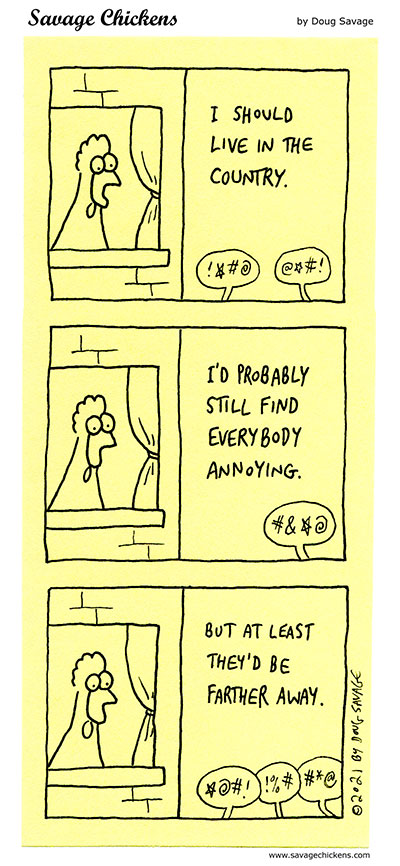 Savage Chickens
by Doug Savage
I SHOULD
LIVE IN THE
COUNTRY.
!☆#@
@☆#!
I'D PROBABLY
STILL FIND
EVERYBODY
ANNOYING.
#&☆@
BUT AT LEAST
THEY'D BE
FARTHER AWAY.
☆@#!
!%#
#*@
©2021 BY DOUG SAVAGE
www.savagechickens.com